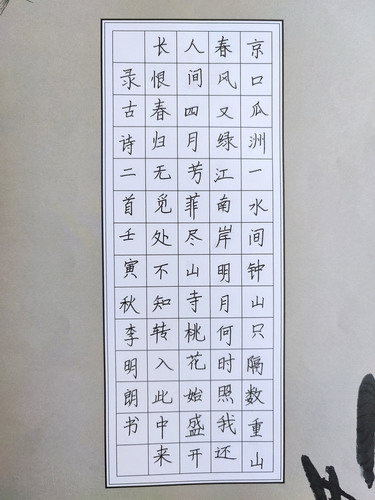 京口瓜洲一水间钟山只隔数重山
春风又绿江南岸明月何时照我还
人间四月芳菲尽山寺桃花始盛开
长恨春归无觅处不知转入此中来
录古诗二首壬寅秋李明朗书